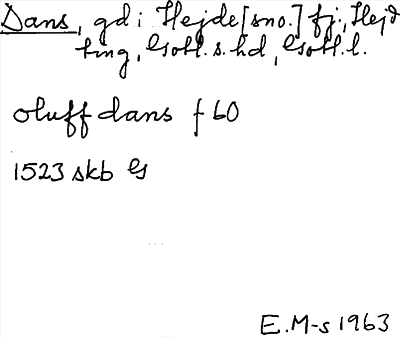 Dans, gd i Hejde [sno.] fj., Hejd
ting, Gotl. s. hd, Gotl. l.
oluff dans f 60
1523 skb G
E. M-s 1963